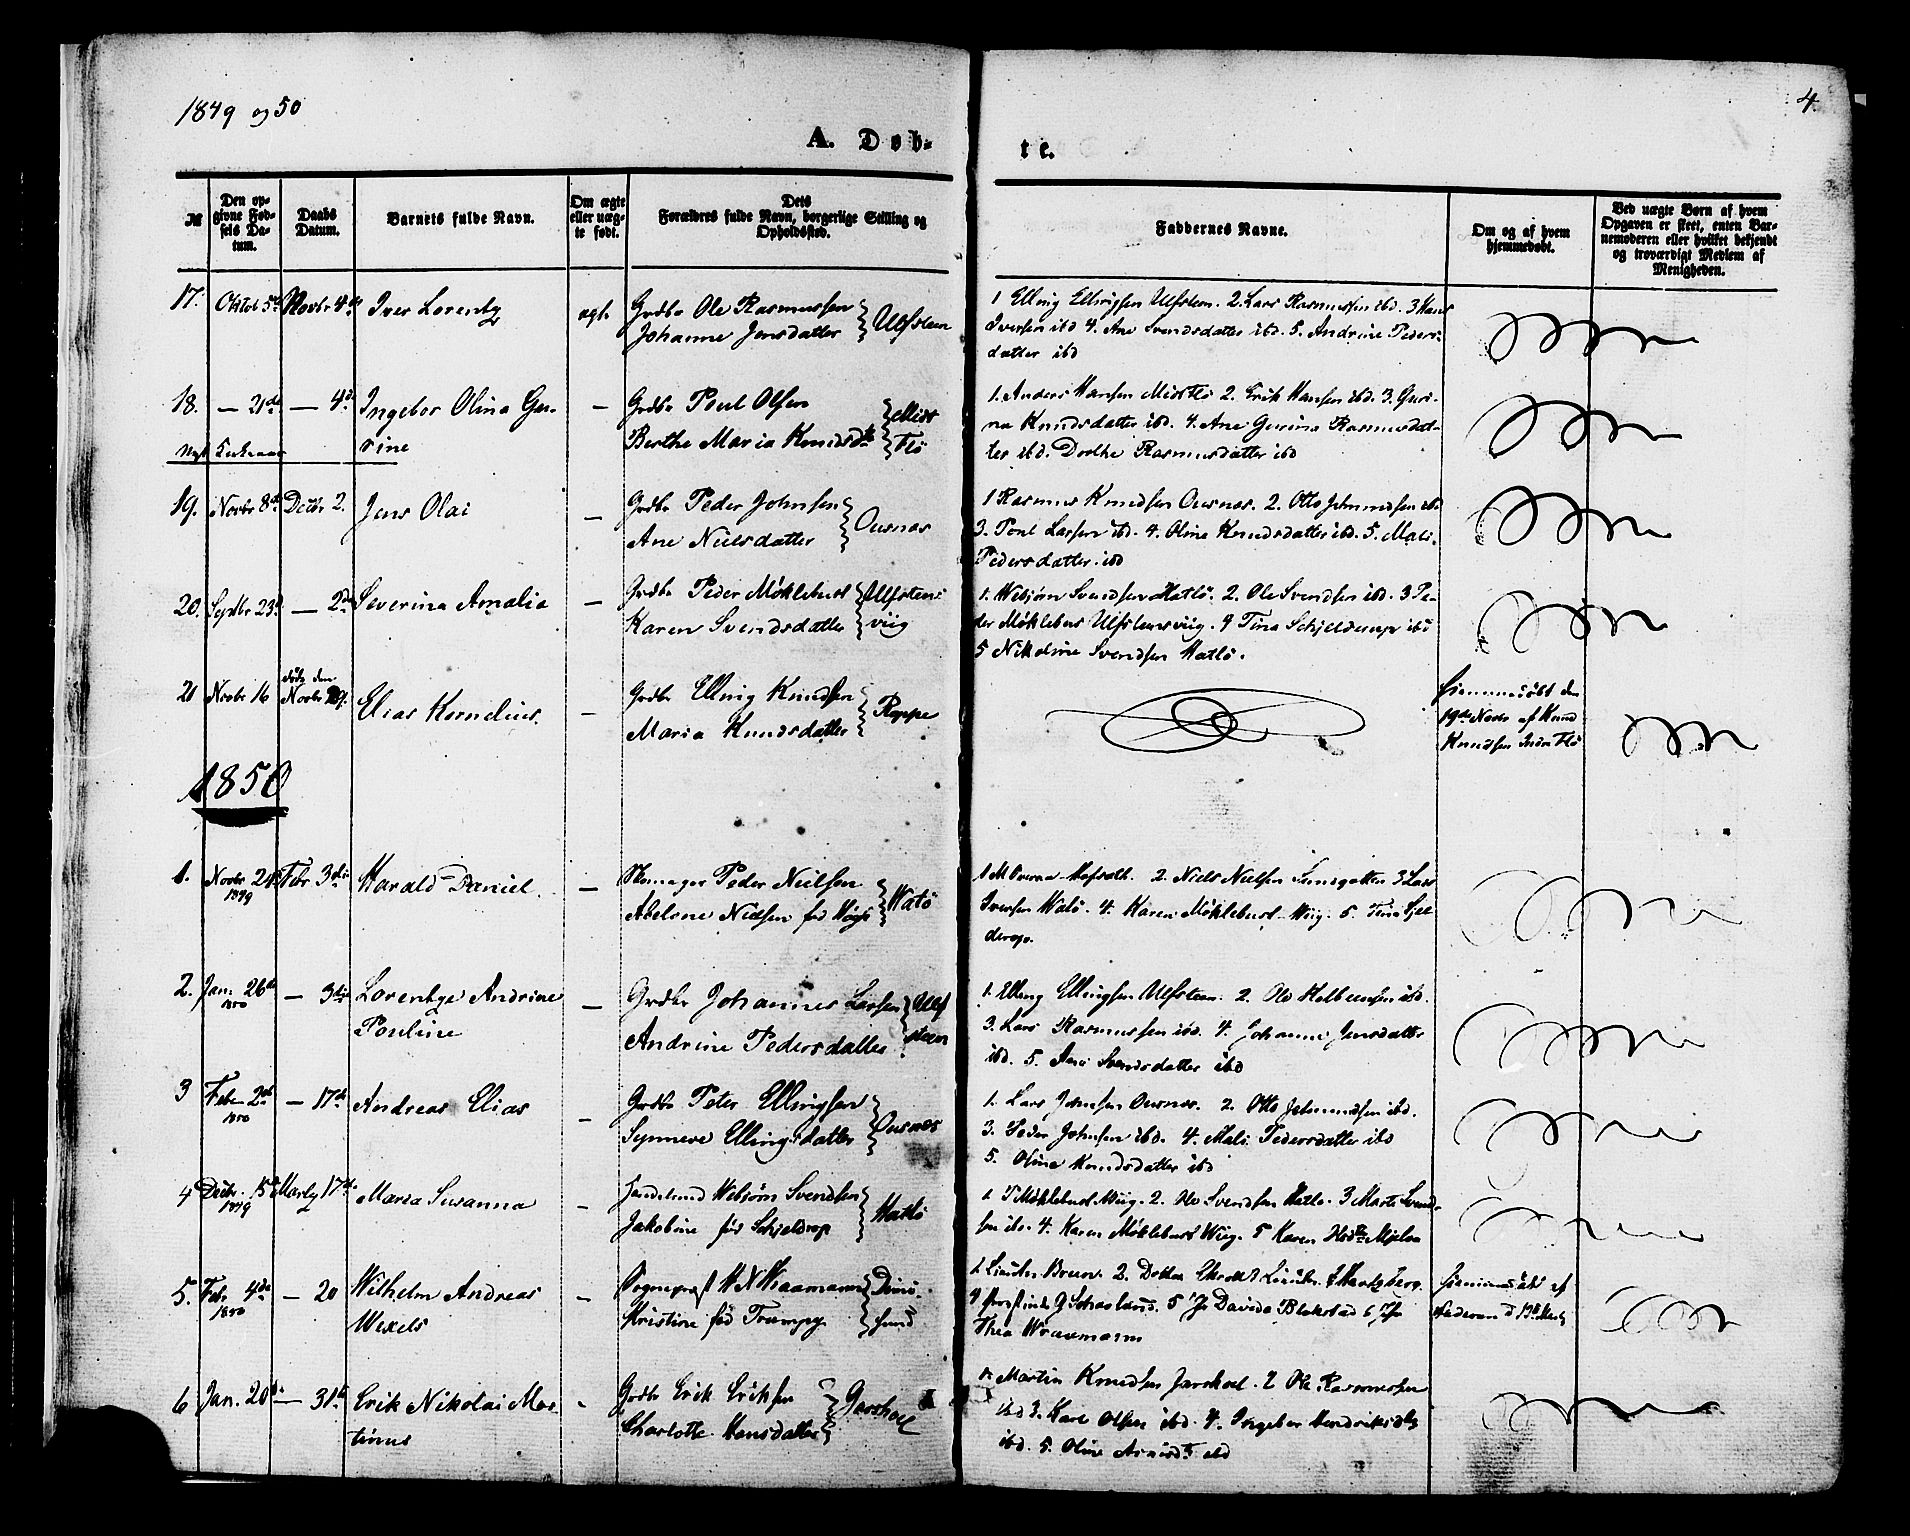 1849 og 50
4.
A. Døb-
te.
№
Den op-
givne Fød-
sels Da-
tum.
Daabs
Datum.
Barnets fulde Navn.
Om ægte
eller uæg-
te født.
Dets
Forældres fulde Navn, borgerlige Stilling og
Opholdssted.
Faddernes Navne.
Om og af hvem
hjemmedøbt.
Ved uægte Børn af hvem
Opgaven er skeet, enten Bar-
nemoderen eller hvilket bekjendt
og troværdigt Medlem af
Menigheden.
17. Oktob 5te Novbr 4de Iver Lorentz ægte Grdbr Ole Rasmussen
Johanne Jensdatter Ulfsteen
1 Elling Ellingsen Ulfsteen. 2. Lars Rasmussen ibd. 3 Hans
Iversen ibd 4. Ane Svendsdatter ibd. 5. Andrine Peders-
datter ibd
18. — 21de — 4de Ingebor Olina Gu-
rine — Grdbr Poul Olsen
Berthe Maria Knudsdtr Midt
Flø
1. Anders Hansen Midtflø 2. Erik Hansen ibd. 3. Guri-
na Knudsdatter ibd. 4. Ane Gurina Rasmusdat-
ter ibd. Dorthe Rasmusdatter ibd
Nyt Kirkeaar
19. Novbr 8de Decbr 2. Jens Olai — Grdbr Peder Johnsen
Ane Nielsdatter Ousnæs
1 Rasmus Knudsen Ousnæs. 2. Otto Johnnudsen ibd
3. Poul Larsen ibd. 4. Olina Knudsdatter ibd. 5. Mali
Pedersdatter ibd
20. Septbr 23d — 2de Severina Amalia — Grdbr Peder Møklebust
Karen Svendsdatter Ulfsteens
viig
1. Webjørn Svendsen Hatlø. 2. Ole Svendsen ibd. 3 Pe-
der Møklebust Ulfsteensviig. 4 Tina Schjelderup ibd
5 Nikoline Svendsen Hatlø.
21 Novbr 16 døbt den
Novbr 29. Elias Kornelius. — Grdbr Elling Knudsen
Maria Knudsdatter Røppe
Hjemmedøbt den
19de Novbr af Knud
Knudsen Indre Flø
1850
1. Novbr 24
1849 Febr 3die Harald Daniel — Peder Nielsen
Abelone Nielsen fød Watø
2. Niels Nielsen 3 Lars
Iversen Watø. 4. Karen Møklebust Wiig. 5. Tina Sjel-
derup.
2. Jan. 26de
1850 — 3die Lorentze Andrine
Pouline — Grdbr Johannes Larsen
Andrine Pedersdatter Ulf
steen
1. Elling Ellingsen Ulfsteen. 2. Ole Kolbeensen ibd.
3. Lars Rasmussen ibd. 4. Johanne Jensdatter
ibd. 5. Ane Svendsdatter ibd
3 Febr 2de
1850 — 17de Andreas Elias — Grdbr Peter Ellingsen
Synneve Ellingsdatter Ousnes
1. Lars Johnsen Ousnes. 2. Otto Johnnudsen ibd.
3. Peder Johnsen ibd. 4. Mali Pedersdatter ibd
5. Olina Knudsdatter ibd
4 Decbr. 15de
1849 Marts 17de Maria Susanna — Webjørn Svendsen
Jakobine fød Schjeldrup Hatlø
1. P Møklebust Wiig. 2. Ole Svendsen Hatlø. 3 Marta Svend-
sen ibd. 4. Karen Møklebust Wiig. 5 Karen Mjelva
5. Febr 4de
1850 — 20 Wilhelm Andreas
Wexels — Sognepræst H N Waamann
Kristine fød Trumpy Dims-
sund
1. Lieutn Bruun. 2. Doktor 3 Lieutn. Hertzberg.
5 Davida Blekstad 6
Thea Waamann
Hjemmedøbt af
Faderen d 13de Marts
6 Jan. 20de — 31te Erik Nikolai Mar-
tinus - Grdbr Erik Eriksen
Charlotte Hansdatter
1. Martin Knudsen 2 Ole Rasmussen
ibd 3. Karl Olsen ibd. 4. Ingebor Hendriksdtr
ibd. 5. Oline ibd